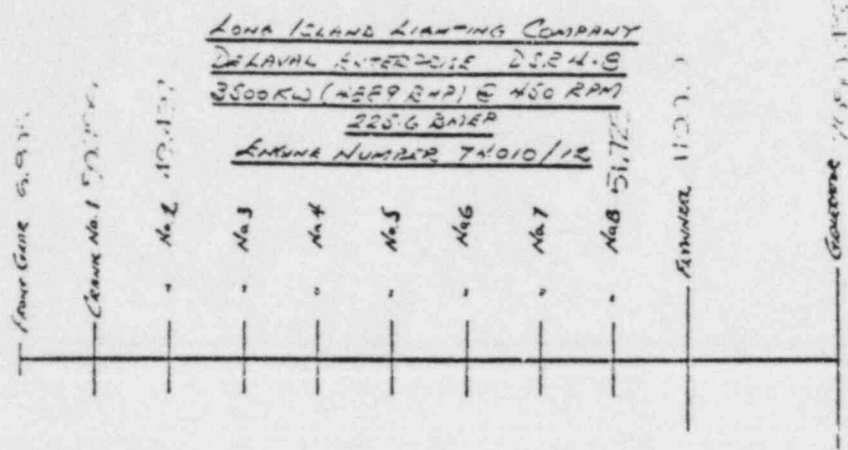 LONG ISLAND LIGHTING COMPANY
DELAVAL ENTERPRISE DSR 4-8
3500 KW (4889 BHP) @ 450 RPM
225.6 BMEP
ENGINE NUMBER 74010/12
FRONT GEAR
CRANK No.1
" No.2
" No.3
" No.4
" No.5
" No.6
" No.7
" No.8
FLYWHEEL
GENERATOR